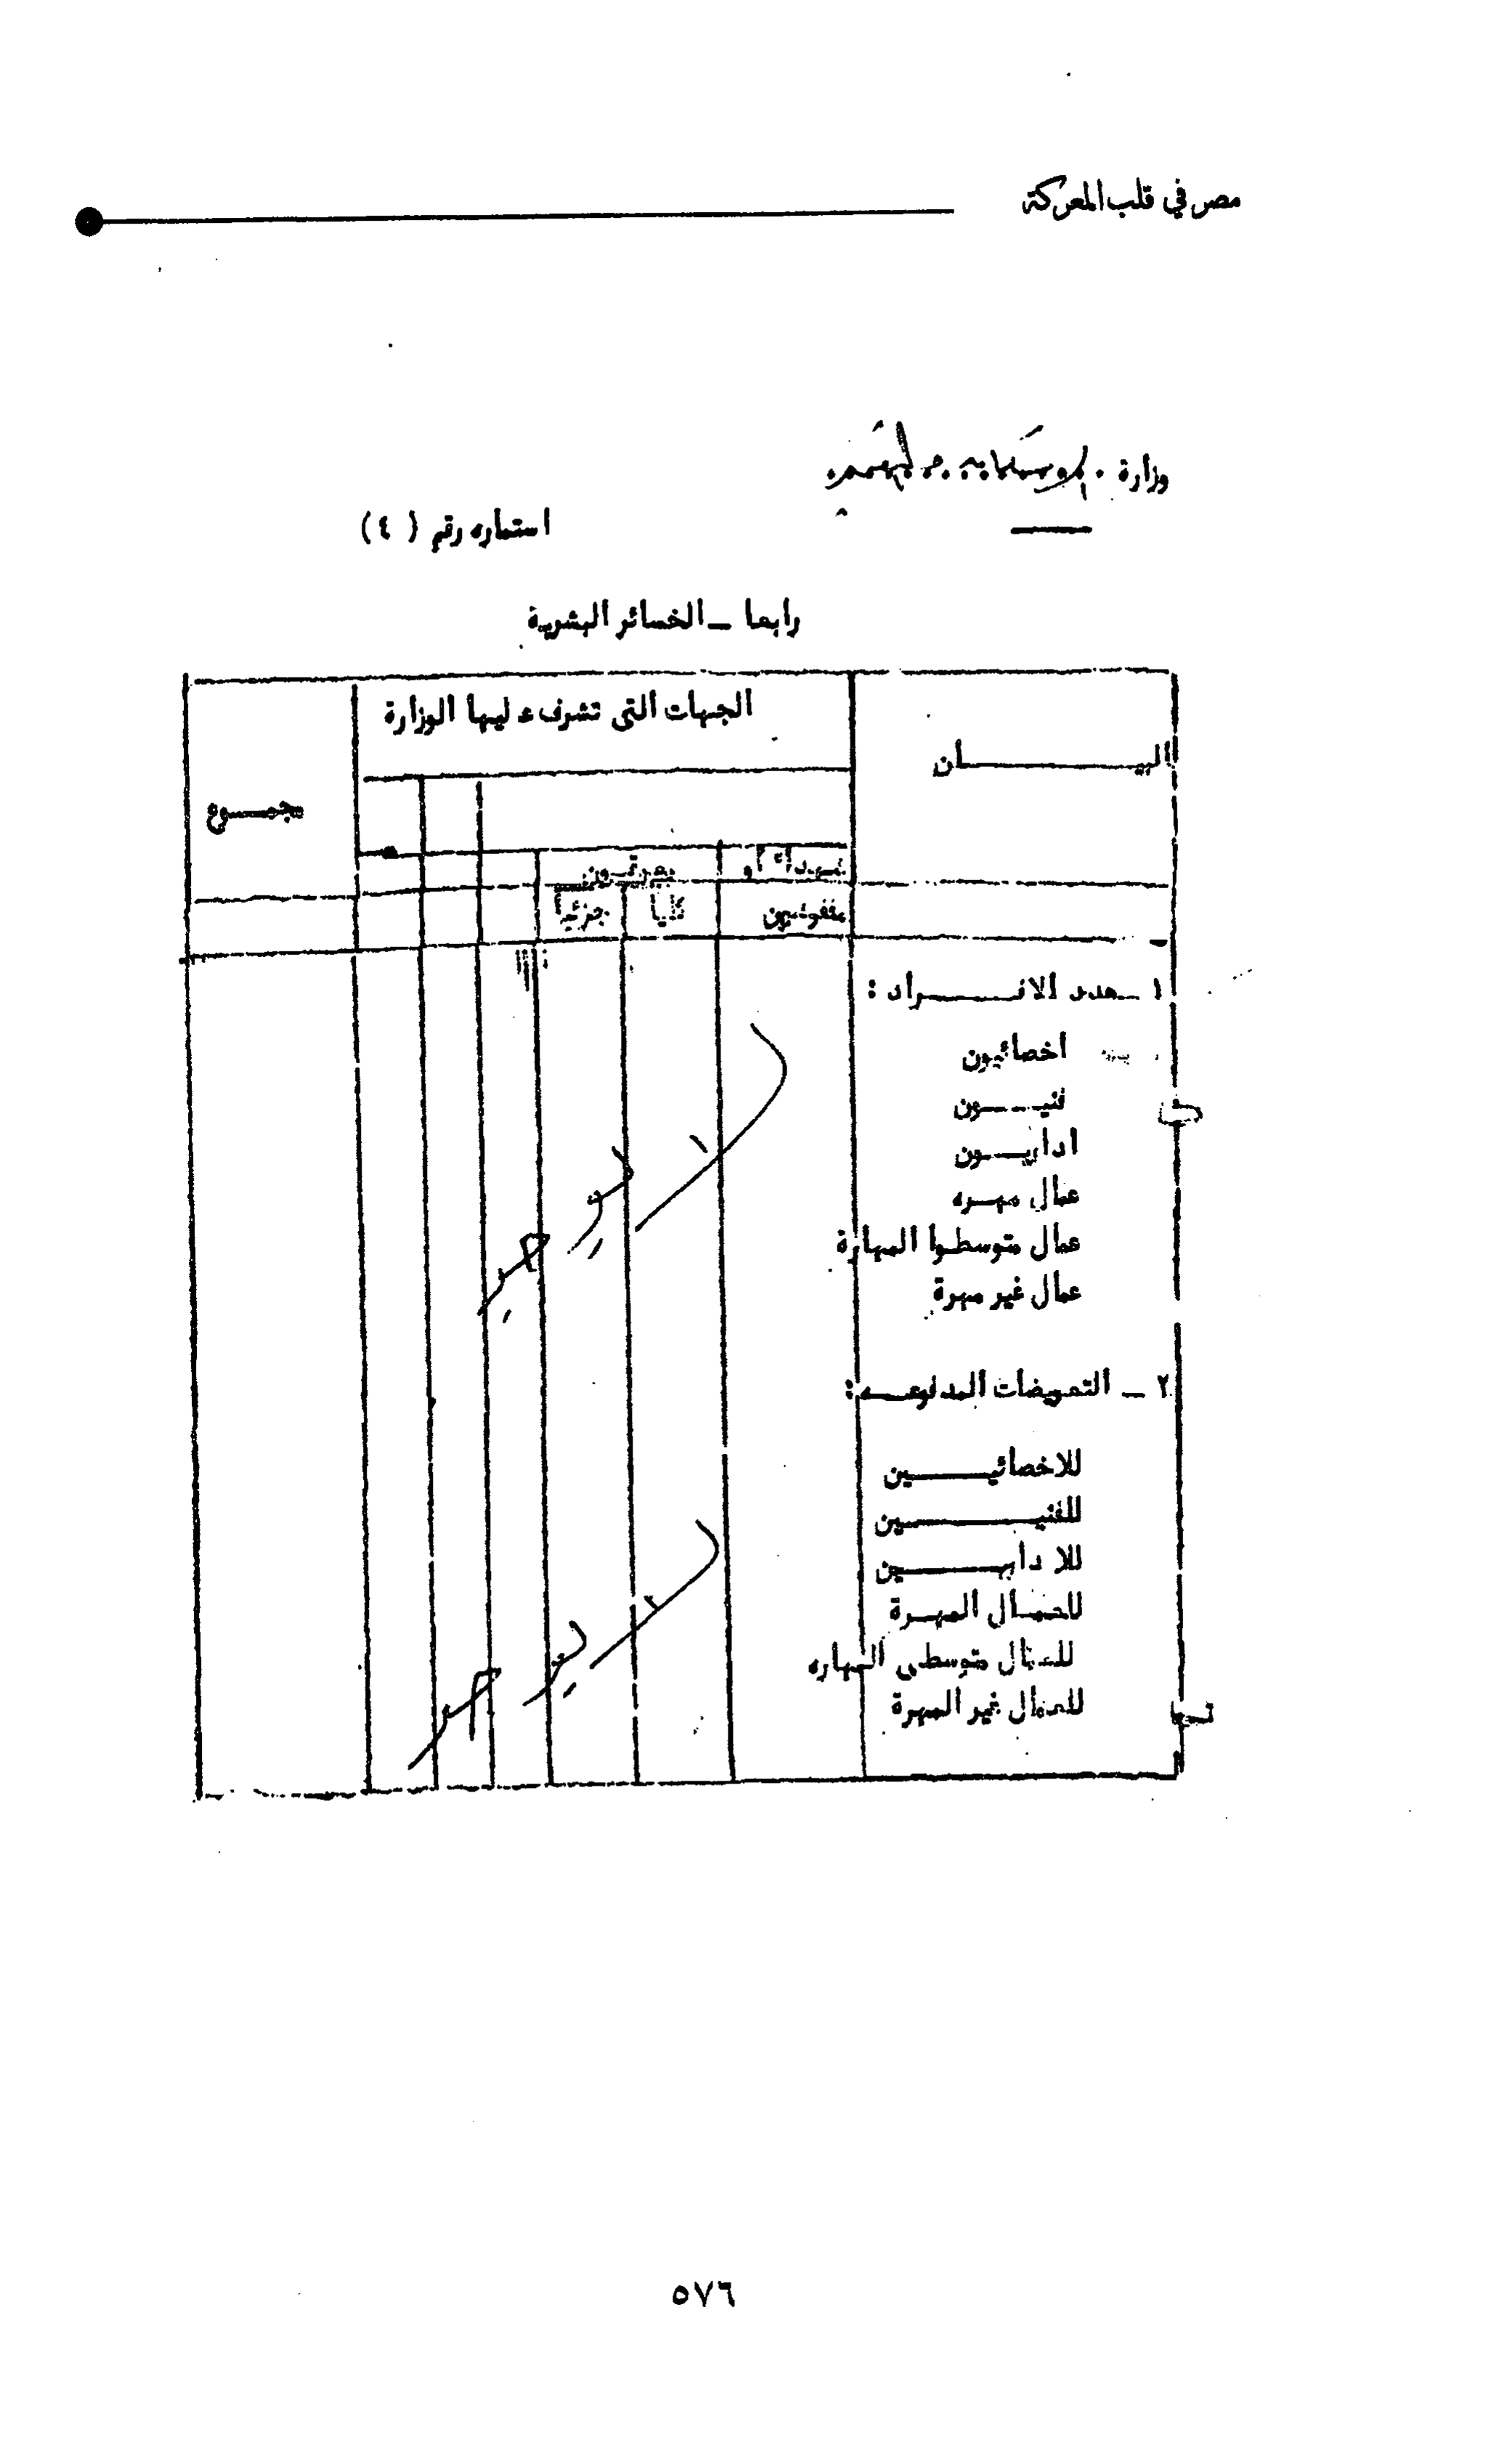 مصر في قلب المعركة
وزارة الإسكان والتعمير
استماره رقم ( ٤ )
رابعا – الخسائر البشرية
البيـــــان
الجهات التى تشرف عليها الوزارة
مجمـــوع
شهداء أو
مفقودين
كليا
جزئيا
١ – عدد الافـــــراد :
اخصائيون
فنيـــون
اداريـــون
عمال مهـره
عمال متوسطوا المهارة
عمال غير مهرة
لا يوجد
٢ – التعويضات المدفوعــه :
للاخصائيـــــين
للفنيـــــــين
للاداريـــــين
للعمـال المهـرة
للعمال متوسطى المهاره
للعمال غير المهرة
لا يوجد
٥٧٦